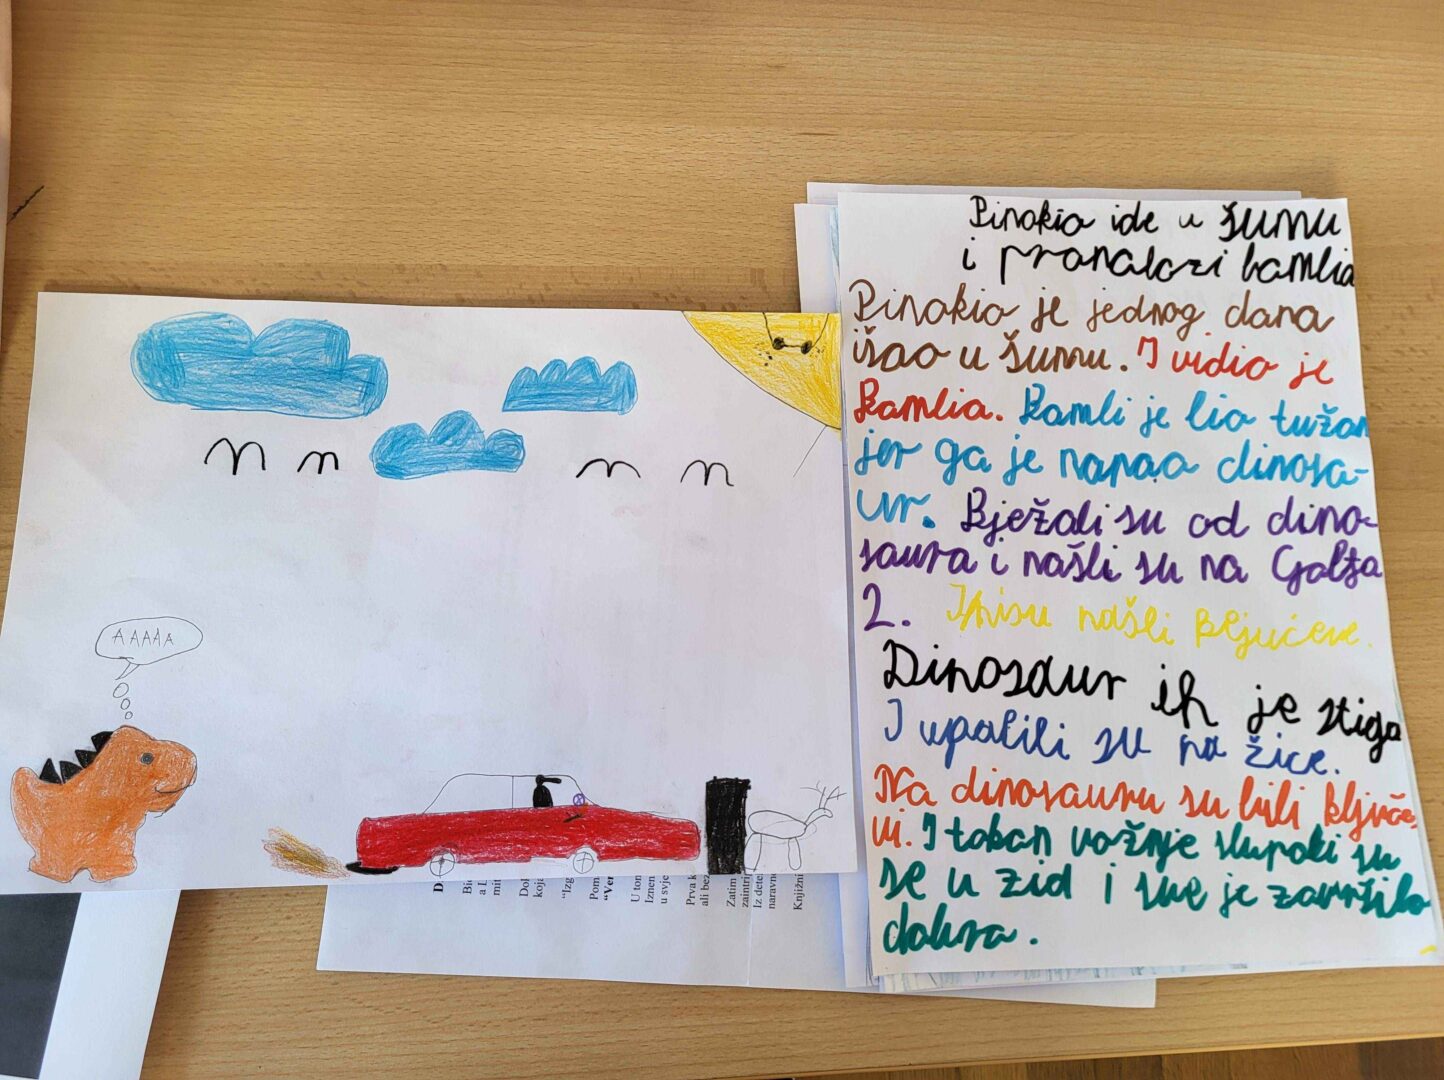 AAAAA
Pinokio ide u šumu
i pronalazi bamlia
Pinokio je jednog dana
išao u šumu. I vidio je
Bamlia. Bamli je bio tužan
jer ga je napao dinosa-
ur. Bježali su od dino-
saura i našli su na Golfa
2. I nisu našli ključeve.
Dinosaur ih je stiga
I upalili su na žice.
Na dinosauru su bili ključe-
vi. I tokan vožnje slupali su
se u zid i sve je završilo
dobra.
D
Bi
a L
mit
Dol
koja
"Izg
Pom
"Ver
U ton
Iznen
u svje
Prva k
ali bez
Zatim
zaintrij
Iz detel
naravno
Knjižni